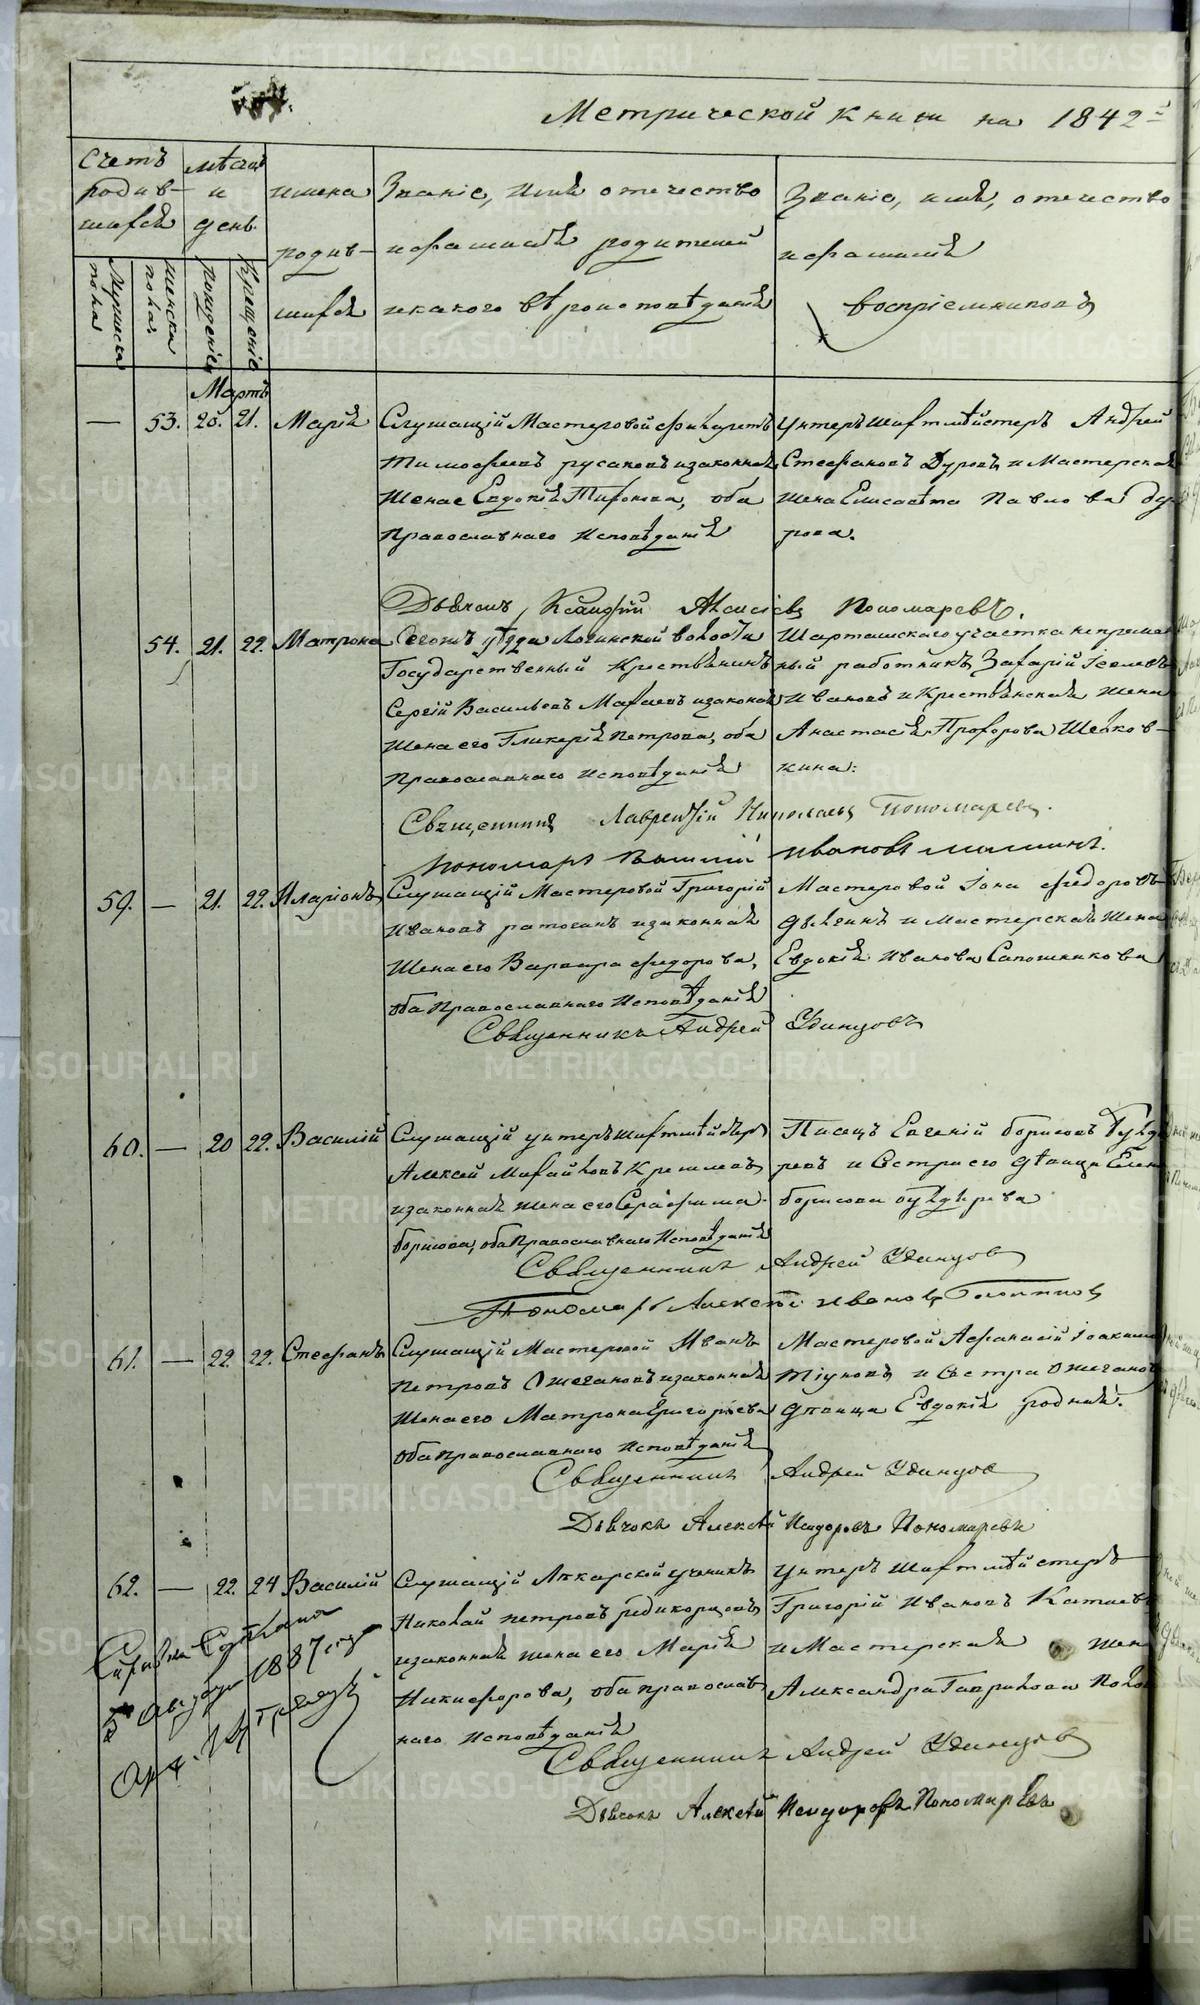 Метрической книги на 1842й
Счетъ родив-шихся
мѣсяцъ и день
имена родив-шихся
Званіе, имя отечество
ифамилія родителей
икакого вѣроисповѣданія
Званіе, имя, отечество
ифамилія
воспріемниковъ
Мужеска пола
женска пола
рожденія
Крещенія
Мартъ
— 53. 20. 21. Марія
Служащій Мастеровой
Тимофеевъ русаковъ изаконная
жена Евдокія, оба
Православнаго Исповѣданія
Унтеръшихтмейстеръ Андрей
Стефановъ Дуровъ и Мастерская
жена Елисавета Павлова Ду-
рова.
Дьячокъ Пономаревъ.
54. 21. 22. Матрона
уѣзда Логиновской волости
Государственный Крестьянинъ
Сергій Васильевъ изаконная
жена его Гликерія Петрова, оба
Православнаго исповѣданія
Шарташскаго участка непремен
ный работникъ Захарій
Ивановъ и Крестьянская жена
Анастасія Прохорова Шелков-
кина:
Священникъ Лаврентій Николаевъ Пономаревъ.
пономарь ивановъ
59. — 21. 22. Иларіонъ
Служащій Мастеровой Григорій
Ивановъ изаконная
Жена его Варвара Федорова,
оба Православнаго Исповѣданія
Мастеровой Іона Федоровъ
и Мастерская жена
Евдокія Иванова Сапожникова
Священникъ Андрей Удинцовъ
60. — 20 22. Василій
Служащій унтеръшихтмейстеръ
Алексей Михайловъ
изаконная жена его Серафима
борисова, оба Православнаго Исповѣданія
Писецъ Евгеній борисовъ
и Сестра его дѣвица Елена
борисова
Священникъ Андрей Удинцовъ
Пономарь Алексѣй Ивановъ
61. — 22. 22. Стефанъ
Служащій Мастеровой Иванъ
Петровъ Ожегановъ изаконная
Жена его Матрона Григорьева
оба Православнаго Исповѣданія
Мастеровой Афанасій Іоакимовъ
Тіуновъ и Сестра Ожеганова
дѣвица Евдокія родная.
Священникъ Андрей Удинцовъ
Дьячокъ Алексѣй Исидоровъ Пономаревъ
62. — 22. 24 Василій
Служащій Лекарской ученикъ
Николай петровъ редикорцовъ
изаконная жена его Марія
Никифорова, оба православ
наго Исповѣданія
Унтеръ Шихтмейстеръ
Григорій Ивановъ Катаевъ
и Мастерская жена
Александра Гаврилова
Священникъ Андрей Удинцовъ
Дьячокъ Алексѣй Исидоровъ Пономаревъ
Справка Сделана
5 Августа 1887 года
METRIKI.GASO-URAL.RU